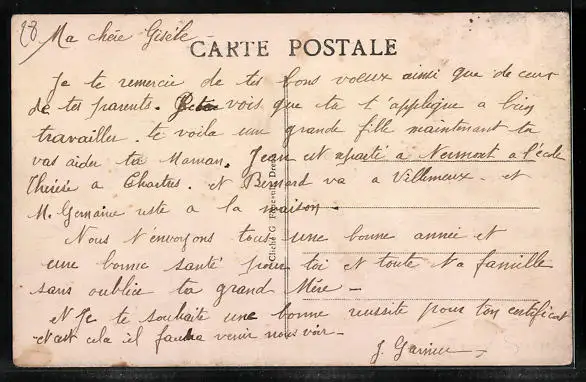 28
Ma chère Gisèle
CARTE POSTALE
Je te remercie de tes bons voeux ainsi que de ceux
de tes parents. Je vois que tu t'applique a bien
travailler te voila une grande fille maintenant tu
vas aider ta Maman. Jean est reparti a a l'école
Thérèse a Chartres. et Bernard va a Villemeux - et
M. Germaine reste a la maison -
Nous t'envoyons tous une bonne année et
une bonne santé pour toi et toute ta famille
sans oublier ta grand Mère -
et Je te souhaite une bonne reussite pour ton certificat
et cela il faudra venir nous voir -
J. Garnier
Cliché G. Dreux